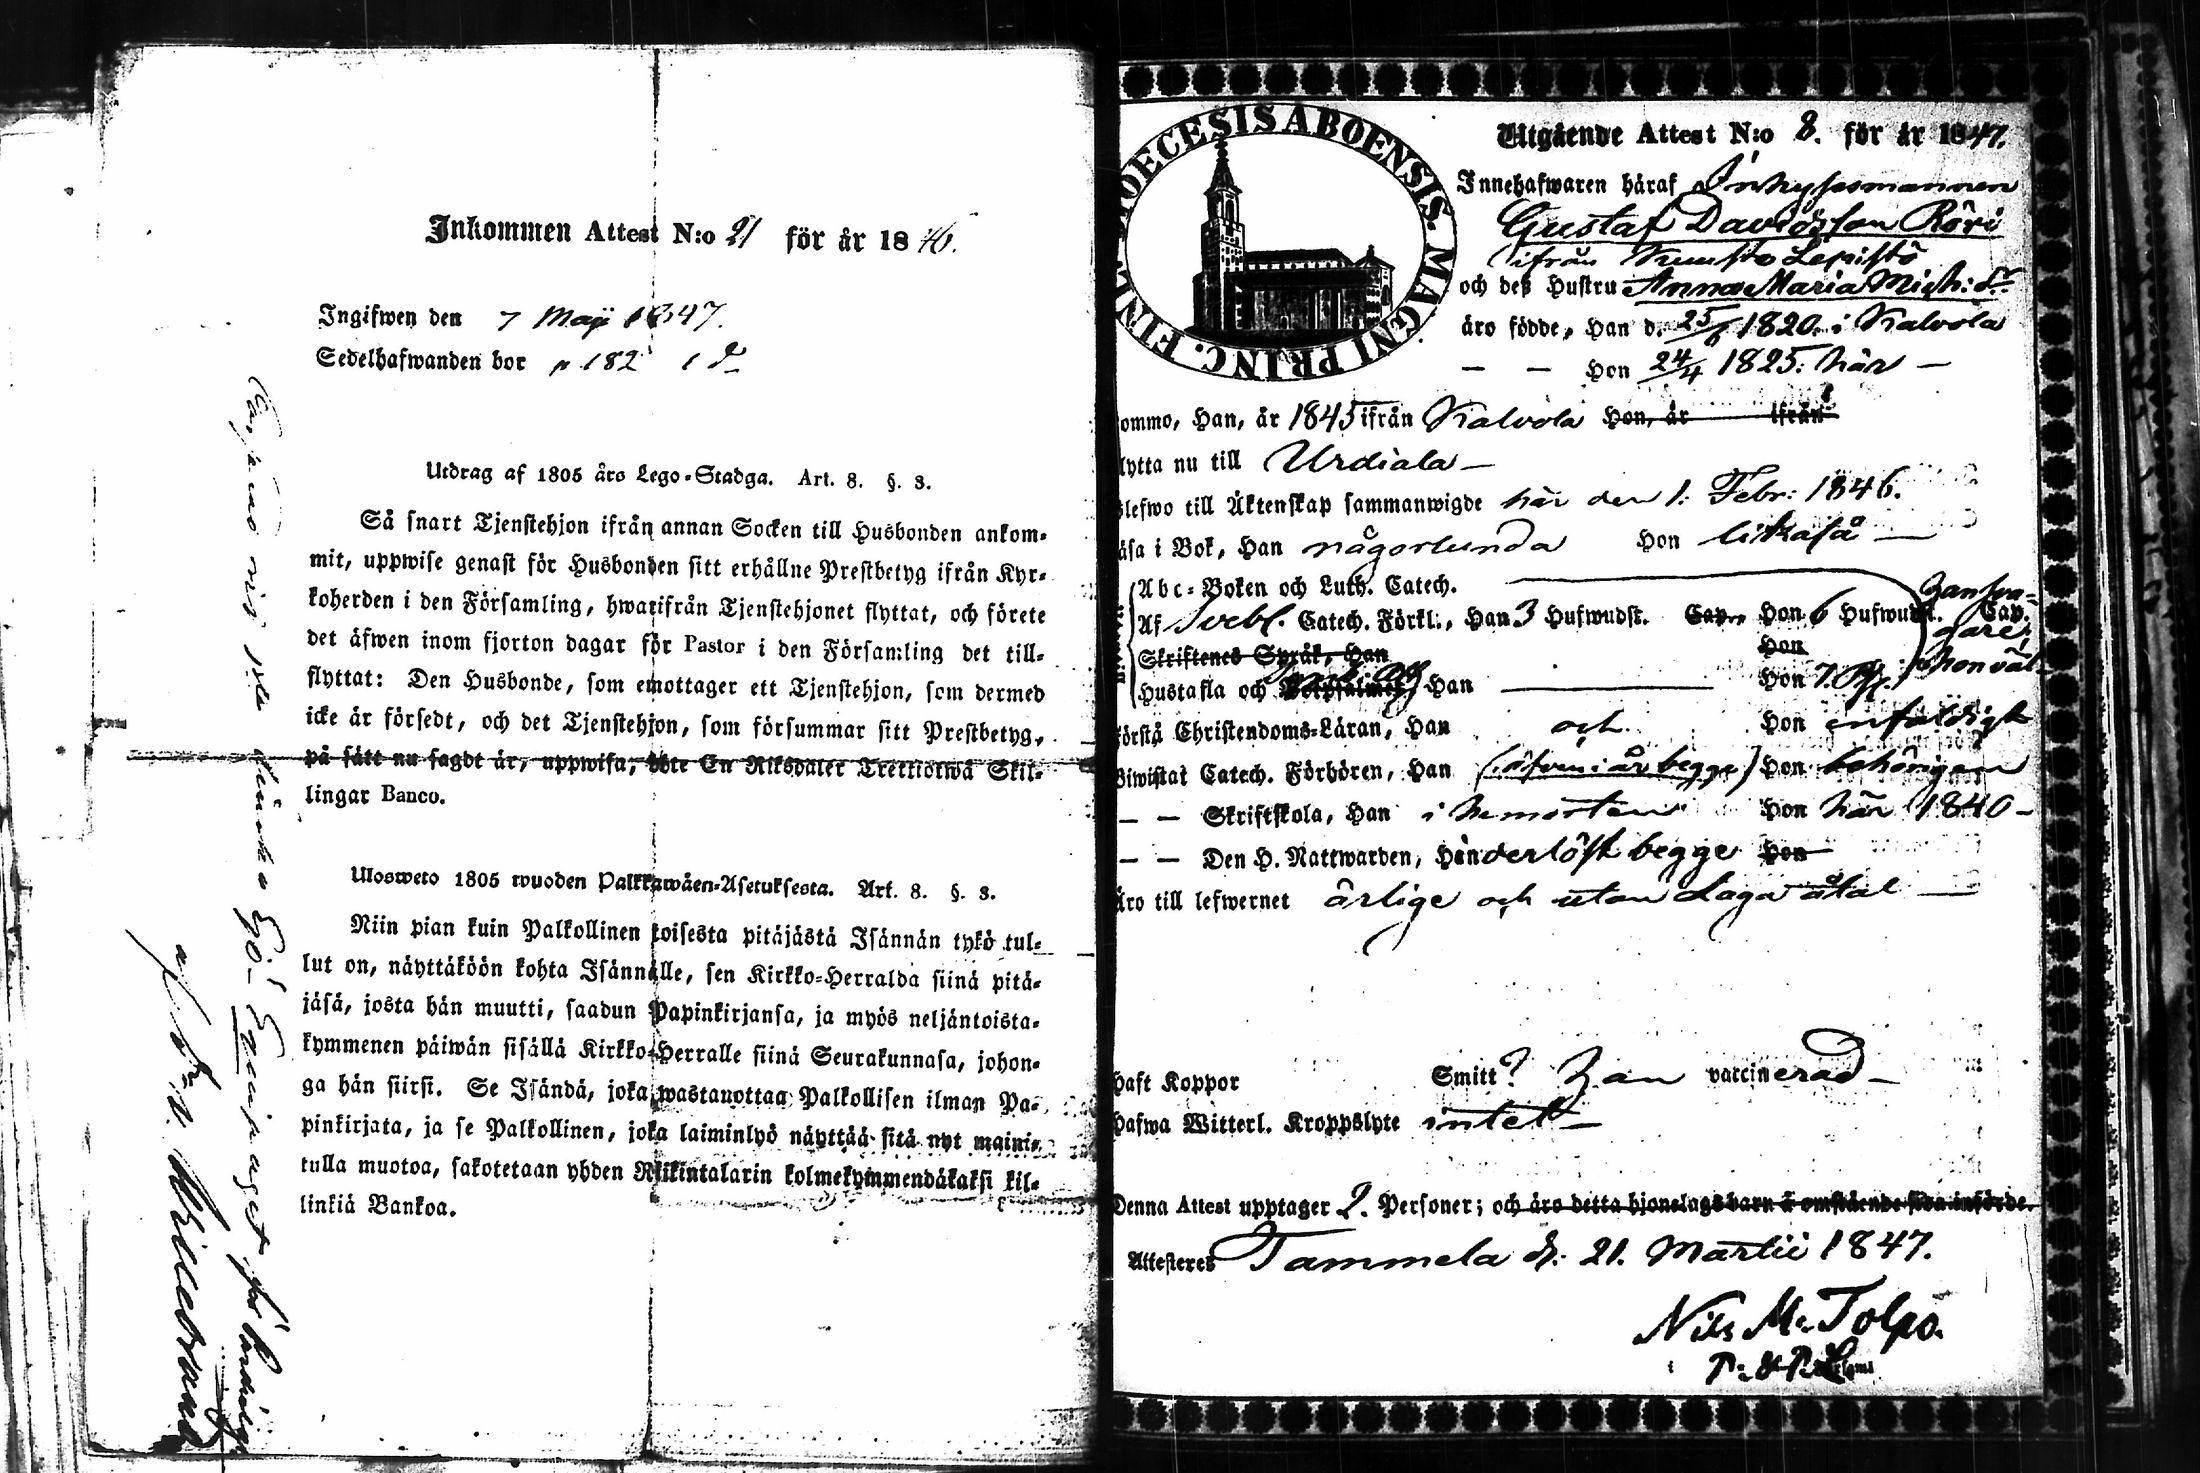 Inkommen Attest N:o 21 för år 1846.
Ingifwen den 7 Maji 1847.
Sedelhafwanden bor p 182
Utdrag af 1805 års Lego-Stadga. Art. 8. §. 3.
Så snart Tjenstehjon ifrån annan Socken till Husbonden ankom-
mit, uppwise genast för Husbonden sitt erhållne Prestbetyg ifrån Kyr-
koherden i den Församling, hwarifrån Tjenstehjonet flyttat, och förete
det äfwen inom fjorton dagar för Pastor i den Församling det till-
flyttat: Den Husbonde, som emottager ett Tjenstehjon, som dermed
icke är försedt, och det Tjenstehjon, som försummar sitt Prestbetyg,
på sätt nu sagdt är, uppwisa, böte En Riksdaler Trettiotwå Skil-
lingar Banco.
Ulosweto 1805 wuoden Palkkawäen-Asetuksesta. Art. 8. §. 3.
Niin pian kuin Palkollinen toisesta pitäjästä Isännän tykö tul-
lut on, näyttäköön kohta Isännälle, sen Kirkko-Herralda siinä pitä-
jäsä, josta hän muutti, saadun Papinkirjansa, ja myös neljäntoista-
kymmenen päiwän sisällä Kirkko-Herralle siinä Seurakunnasa, johon-
ga hän siirsi. Se Isändä, joka wastanottaa Palkollisen ilman Pa-
pinkirjata, ja se Palkollinen, joka laiminlyö näyttää sitä nyt maini-
tulla muotoa, sakotetaan yhden Riikintalarin kolmekymmendäkaksi kil-
linkiä Bankoa.
DIOECESIS ABOENSIS. MAGNI PRINC. FINL.
Utgående Attest N:o 8. för år 1847.
Innehafwaren häraf Inhysesmannen
Gustaf Davidsson Röri
ifrån Kumsto Lepistö
och deß Hustru Anna Maria Mich:dr
äro födde, Han d. 25/6 1820. i Kalvola
— — Hon 24/4 1825. här —
ommo, Han, år 1845 ifrån Kalvola Hon, år ifrån
lytta nu till Urdiala —
lefwo till Äktenskap sammanwigde här den 1. Febr: 1846.
äsa i Bok, Han någorlunda Hon likaså —
Abc-Boken och Luth. Catech.
Af Svebl. Catech. Förkl., Han 3 Hufwudst. Cap., Hon 6 Hufwudst. Cap.
Skriftenes Språk, Han Hon
Hustafla och Han — Hon 7. hon väl
förstå Christendoms-Läran, Han och Hon enfaldigt
Biwistat Catech. Förhören, Han (äfven i år begge) Hon behörigen
— — Skriftskola, Han i hemorten Hon här 1840 —
— — Den H. Nattwarden, Hinderlöst begge Hon
Äro till lefwernet ärlige och utan Laga åtal —
Haft Koppor Smitt? Han vaccinerad —
Hafwa Witterl. Kroppslyte intet —
Denna Attest upptager 2. Personer; och äro detta hjonelags barn å omstående sida införde.
Attesteres Tammela d. 21. Martii 1847.
Nils M. Tolpo.